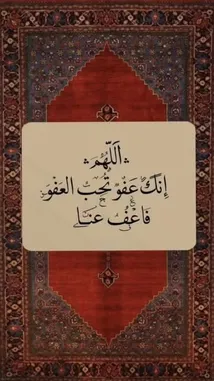 اَللّٰهُمَّ
إِنَّكَ عَفُوٌّ تُحِبُّ العَفْوَ
فَاعْفُ عَنَّا